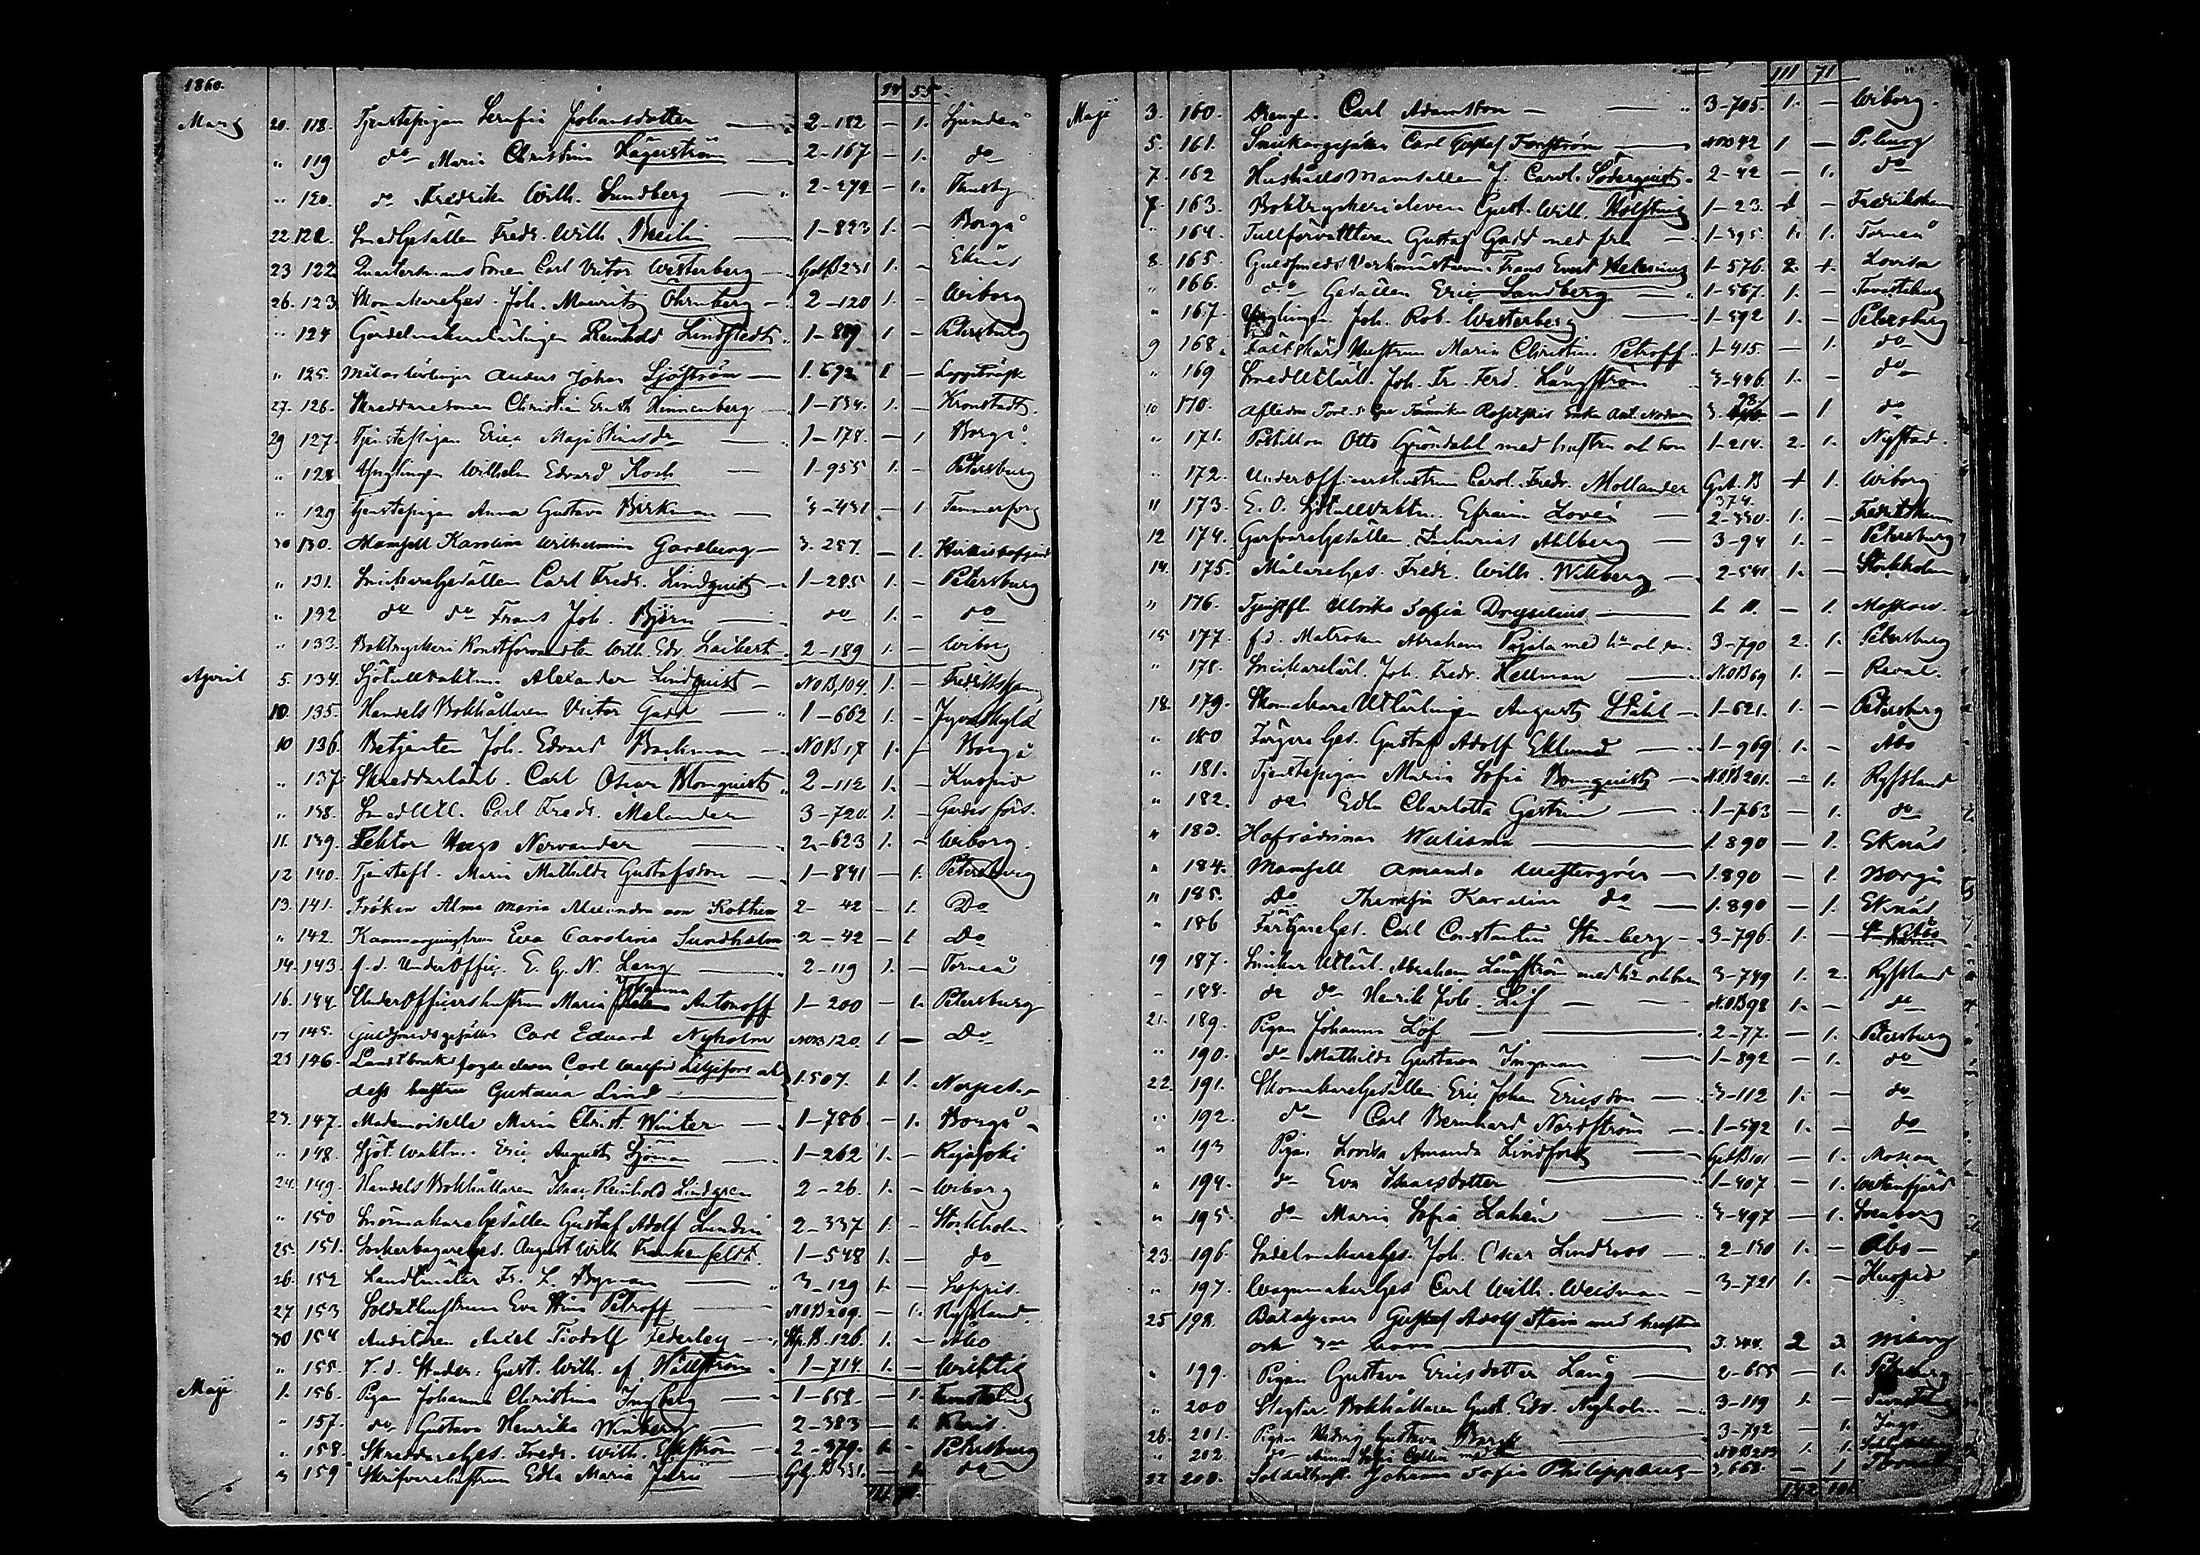 1860. 94 55
Mars 20. 118. Tjenstepigan Serafia Johansdotter — 2-182 — 1. Sjundeå
" 119 do Maria Christina Hägerström — 2-167 — 1. do
" 120. do Fredrika Wilh. Lundberg — 2-279 — 1. Thusby
22 121. Smedgesällen Fredr. Wilh. — 1-893 1. — Borgå
23 122 Carl Victor Westerberg — 231 1. — Eknäs
26. 123. Skomakareges. Joh. Mauritz Öhrnberg — 2-120 1. — Wiborg
" 124 Gördelmakarelärlingen Reinhold Lindstedt 1-889 1 — Petersburg
" 125. Målarelärlingen Anders Johan Sjöström — 1. 692 1 — Loppträsk
27. 126. Skreddaresonen Christian Ernst — 1-734. 1. — Kronstadt.
29 127. Tjenstepigan Erica Maja — 1-178. — 1 Borgå.
" 128 Ynglingen Wilhelm Edvard Koch — 1-955 1. — Petersburg
" 129 Tjenstepigan Anna Gustava Birkman — 3-431 — 1 Tammerfors
30 130. Mamsell Karolina Wilhelmina — 3-257. — 1.
" 131. Snickaregesällen Carl Fredr. Lindquist — 1-285 1. — Petersburg
" 132 do do Frans Joh. Björn — do 1. — do
" 133. Boktryckeri Konstförvandten Wilh. Edv. Laibert 2-189 1. — Wiborg
April 5. 134. Sjötullvaktm. Alexander Lindquist — NOB 109. 1. — Fredrikshamn
10. 135. Handels Bokhållaren Victor Gadd — 1-662 1. — Jyväskylä
10 136. Betjenten Joh. Edvard Backman — NOB 18 1. — Borgå
" 137. Skreddarlärl. Carl Oscar Blomquist 2-112 1. — Kuopio
" 138. Smed Carl Fredr. Melander 3-720 1. —
11. 139. Lektor Hugo Nervander — 2-623 1. — Wiborg.
12 140. Tjenstefl. Maria Mathilda Gustafsdon — 1-841 — 1. Petersburg
13. 141. Fröken Alma Maria Alexandra von Kothen 2-42 — 1. Do
" 142. Kammarjungfrun Eva Carolina Sundholm 2-42 — 1 Do
14. 143. f.d. UnderOffic. E. G. N. Lang — 2-119 1. — Torneå
16. 144. UnderOfficershustrun Maria Johanna Antonoff 1-200 — 1. Petersburg
17 145. Guldsmedsgesällen Carl Eduard Nyholm NOB 120. 1 — Do
23 146. Landtbruks Carl Liljefors och
dess hustru Gustava Lind — 1. 507. 1. 1.
23. 147. Mademoiselle Maria Christ. Winter — 1-786 — 1. Borgå
" 148. Sjöt. Waktm. Eric August Sjöman — 1-262 1. — Rajajoki
24. 149. Handels Bokhållaren Isaac Reinhold Lindgren 2-26. 1. — Wiborg
" 150 Snörmakaregesällen Gustaf Adolf Lundin 2-337 1. — Stockholm
25. 151. Sockerbagareges. August Wilh. Frankenfeldt. 1-548 1. — do
26. 152 Landtmäter Fr. L. Byman — 3-129 1. —
27 153 Soldathustrun Eva Stina Petroff — NOB 209. — 1. Ryssland.
30 154 Auditören Axel Fiodolf Federley — B. 126 1. — Åbo
" 155. F.d. Studer. Gust. Wilh. af Hällström 1-714. 1. — Wichtis
Maji. 1. 156. Pigan Johanna Christina — 1-658. — 1. Tavastehus
" 157. do Gustava Henrika — 2-383 — 1. Karis
" 158. Skreddareges. Fredr. Wilh. Ekström — 2-379. 1. — Petersburg
" 159 Skrifvarehustrun Edla Maria — 331. — 1. do
111 71.
111 71
Maji 3. 160. Drengen Carl Adamsson — 3-705. 1. — Wiborg.
5. 161. Snickargesällen Carl Gustaf Forsström — NOB 42 1 — P.burg
7. 162 Hushålls Mamsellen J. Carol. Söderquist 2-42 — 1. do
7. 163. Boktryckerieleven Gust. Will. 1-23. 1 — Fredrikshamn
" 164. Tullförvalttaren Gustaf Gadd med fru — 1-395. 1. 1. Torneå
8. 165. Guldsmeds Verkmästaren Frans Evert Helenius 1-576. 2. 1. Lovisa
" 166. do Gesällen Eric Sandberg — 1-567. 1. — Tavastehus
" 167. Ynglingen Joh. Rob. Westerberg — 1-592 1. — Petersburg
9 168. Fältskärs Hustrun Maria Christina Petroff 1-415. — 1. do
" 169 Joh. Fr. Ferd. Långström 3-496. 1. — do
10 170. — 1 do
" 171. Postillon Otto Gröndahl med hustru och son 1-214. 2. 1. Nystad.
" 172. UnderOfficershustrun Carol. Fredr. Mollander Gat. B 374. 1 1. Wiborg
11 173. E. O. Sjötullvaktm. Efraim Lovén — 2-330. 1. — Fredrikshamn
12 174. Garfvaregesällen Zacharias Ahlberg — 3-94 1. — Petersburg
14. 175. Målareges. Fredr. Wilh. Wikberg — 2-541 1. — Stockholm
" 176. Tjenstefl. Ulrika Sofia — 1- 11. — 1. Moskow.
15 177. f.d. Matrosen Abraham Pajala med h:u och son 3-790 2. 1. Petersburg
" 178. Snickarelärl. Joh. Fredr. Hellman — NOB 69 1. — Reval.
18. 179. Skomakare Utlärlingen August Ståhl — 1-621. 1. — Petersburg
" 180 Färgare Ges. Gustaf Adolf Eklund — 1-969 1. — Åbo
" 181. Tjenstepigan Maria Sofia Bomquist — NOB 201. — 1. Ryssland
" 182. do Edla Charlotta — 1-763 — 1. do
" 183. Hofrådinnan — 1. 890 — 1. Eknäs
" 184. Mamsell Amanda — 1. 890 — 1. Borgå
" 185. Do Karolina do — 1. 890 — 1. Eknäs
" 186 Färgareges. Carl Constantin Stenberg — 3-796. 1. —
19 187. Snickar Utlärl. Abraham Långström med h:u och barn 3-749 1. 2. Ryssland
" 188. do do Henrik Joh. Löf — NOB 98 1. — do
21. 189. Pigan Johanna Löf — 2-77. — 1. Petersburg
" 190. do Mathilda Gustava Ingman — 1-892 — 1. do
22. 191. Skomakaregesällen Eric Johan Ericsson — 3-112 1. — do
" 192. do Carl Bernhard Nordström — 1-592 1. — do
" 193 Pigan Lovisa Amanda Lindfors — 101 — 1. Moscou
" 194. do Eva Isacsdotter — 1-407 — 1.
" 195. do Maria Sofia Lahén — 3-497 — 1. Sveaborg
23. 196. Sadelmakareges. Joh. Oskar Lindroos — 2-150 1. — Åbo —
" 197. Vagnmakareges Carl Wilh. Weisman — 3-721 1. — Kuopio
25 198. Gustaf Adolf Stein med hustru
och 3ne barn — 3. 344. 2 3. Wiborg
" 199. Pigan Gustava Ericsdotter Lång — 2-655 — 1. Petersburg
" 200 Bokhållaren Gust. Edv. Nyholm — 3-119 1. —
26. 201. Pigan Hedvig Gustava — 3-792 — 1. Ingo
" 202. do Anna Sofia — 1. 1.
22 203. Soldathust. Johanna Sofia 3. 668. — 1
142 101